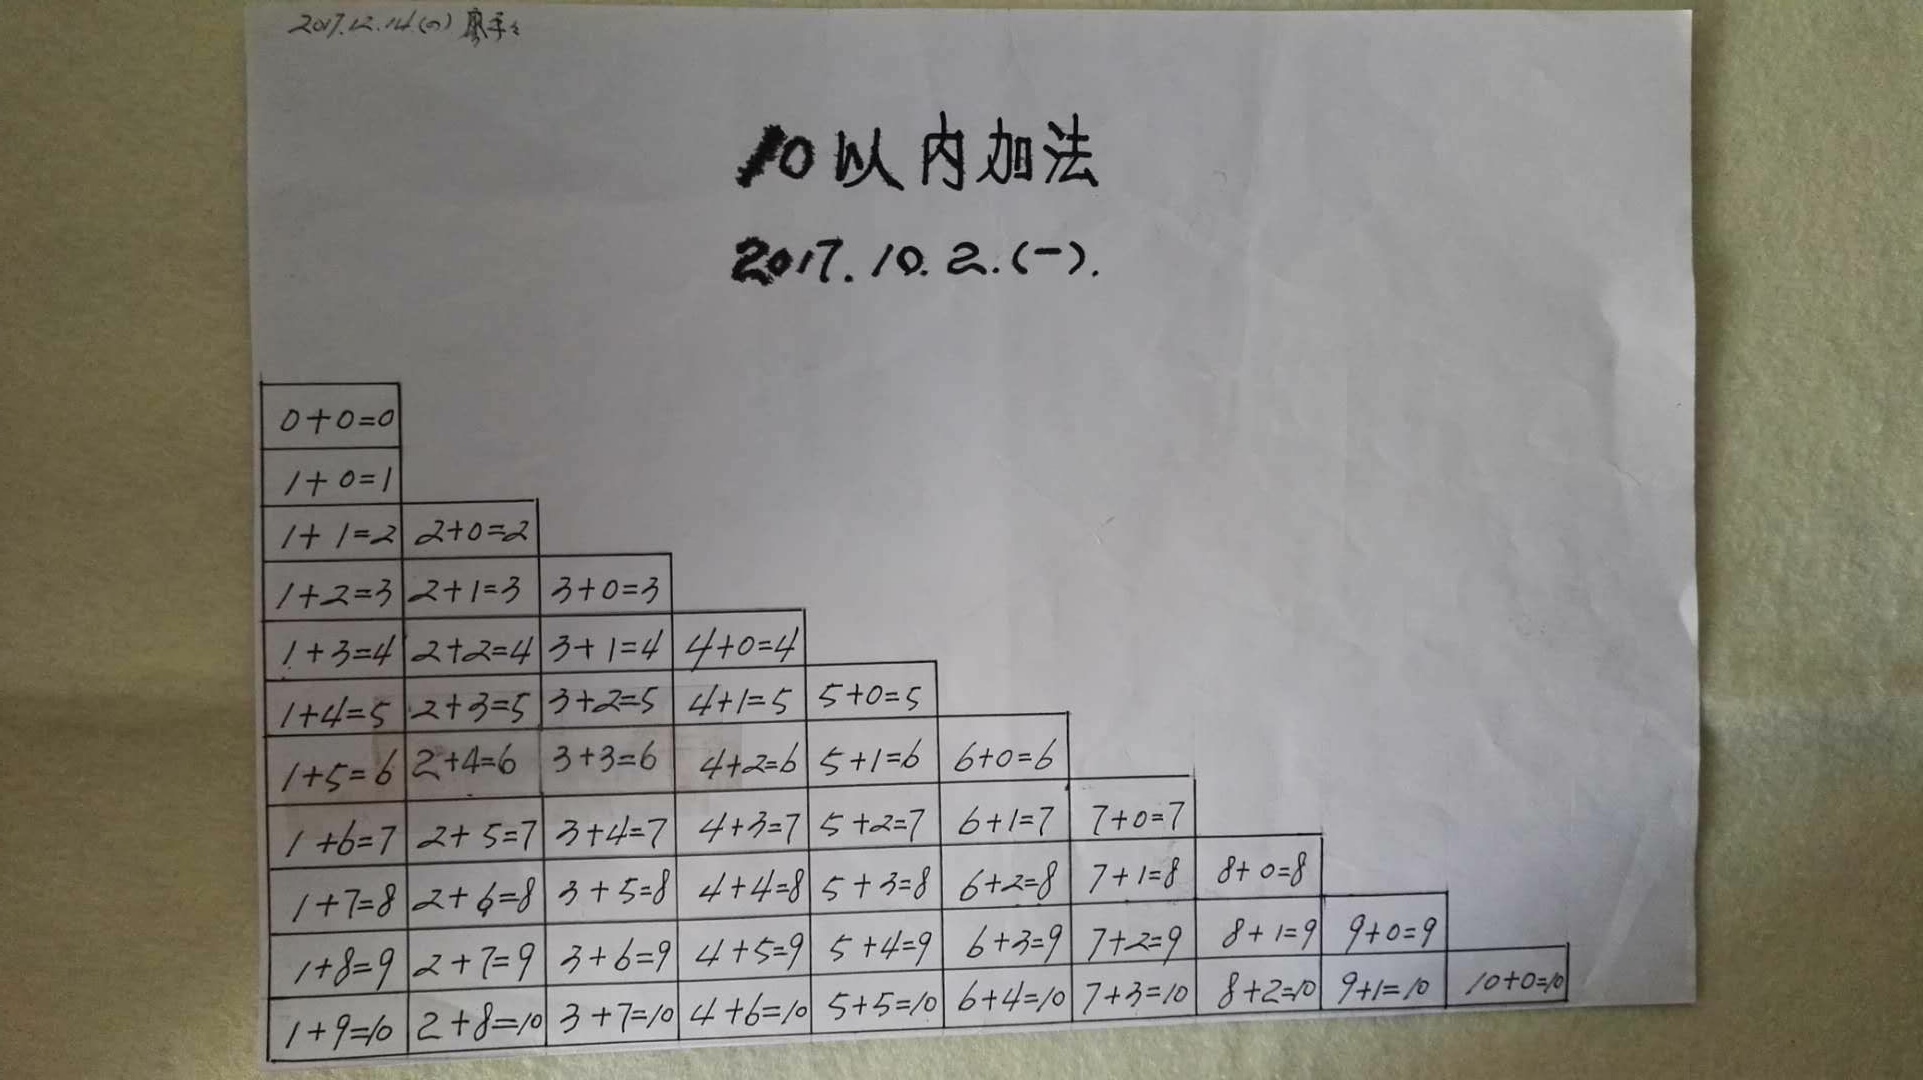 2017.12.14.(四)
10以内加法
2017.10.2.(一).
0+0=0
1+0=1
1+1=2 2+0=2
1+2=3 2+1=3 3+0=3
1+3=4 2+2=4 3+1=4 4+0=4
1+4=5 2+3=5 3+2=5 4+1=5 5+0=5
1+5=6 2+4=6 3+3=6 4+2=6 5+1=6 6+0=6
1+6=7 2+5=7 3+4=7 4+3=7 5+2=7 6+1=7 7+0=7
1+7=8 2+6=8 3+5=8 4+4=8 5+3=8 6+2=8 7+1=8 8+0=8
1+8=9 2+7=9 3+6=9 4+5=9 5+4=9 6+3=9 7+2=9 8+1=9 9+0=9
1+9=10 2+8=10 3+7=10 4+6=10 5+5=10 6+4=10 7+3=10 8+2=10 9+1=10 10+0=10